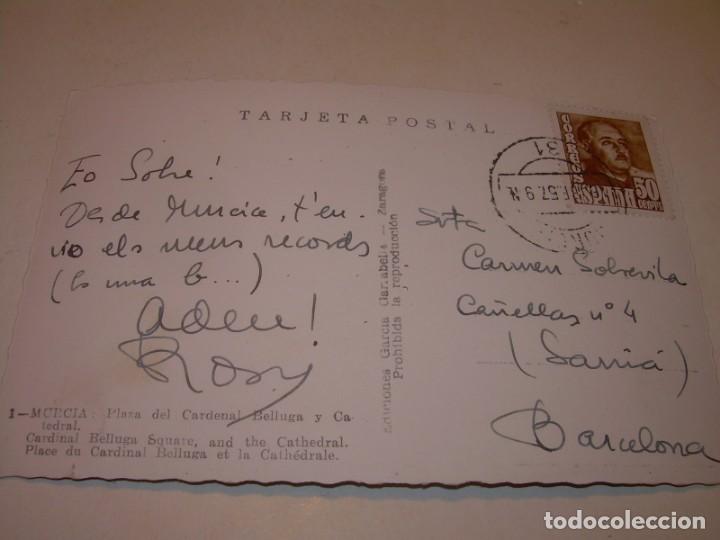 TARJETA POSTAL
Eo Sobre!
Desde Murcia, t'en-
vio els meus records
(es una b...)
adeu!
Rosy
1—MURCIA: Plaza del Cardenal Belluga y Ca-
tedral.
Cardinal Belluga Square, and the Cathedral.
Place du Cardinal Belluga et la Cathédrale.
Ediciones García Garrabella — Zaragoza
Prohibida la reproducción
CORREOS
ESPAÑA
50
CENTS
31
57. 9 N
Srta
Carmen Sobrevila
Cañellas nº 4
(Sarriá)
Barcelona
todocoleccion
todocoleccion.net